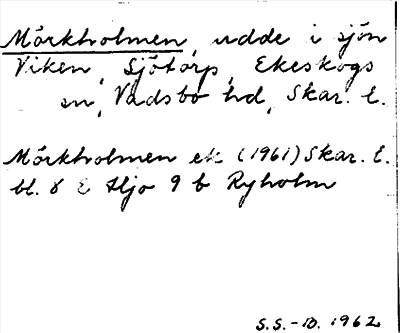 Mörkholmen, udde i sjön
Viken, Sjötorp, Ekeskogs
sn, Vadsbo hd, Skar. l.
Mörkholmen ek (1961) Skar. l.
bl. 8 E Hjo 9 b Ryholm
S.S.-B. 1962